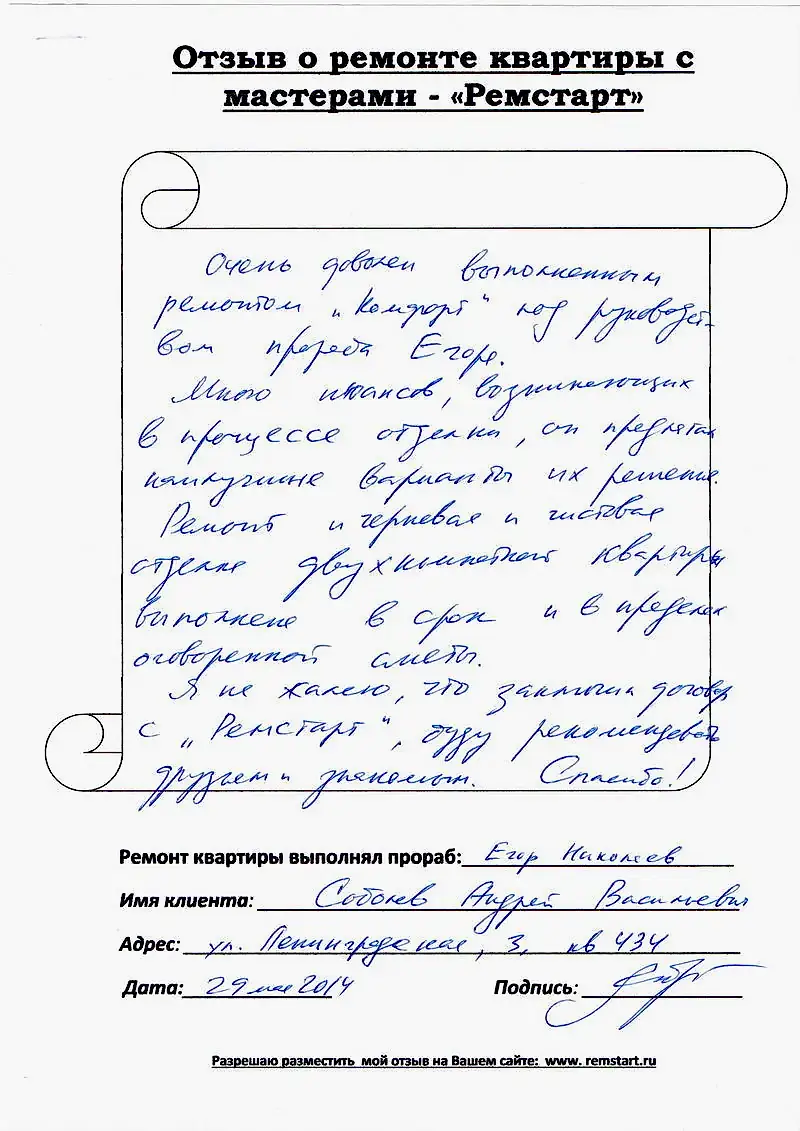 Отзыв о ремонте квартиры с
мастерами - «Ремстарт»
Очень доволен выполненным
ремонтом „Комфорт" под руководст-
вом прораба Егора.
Много нюансов, возникающих
в процессе отделки, он предлагал
наилучшие варианты их решения.
Ремонт и черневая и чистовая
отделка двухкомнатной квартиры
выполнена в срок и в пределах
оговоренной сметы.
Я не жалею, что заключил договор
с „Ремстарт", буду рекомендовать
друзьям и знакомым. Спасибо!
Ремонт квартиры выполнял прораб: Егор Николаев
Имя клиента: Соболев Андрей Васильевич
Адрес: ул. Ленинградская, 3, кв 434
Дата: 29 мая 2014 Подпись:
Разрешаю разместить мой отзыв на Вашем сайте: www. remstart.ru